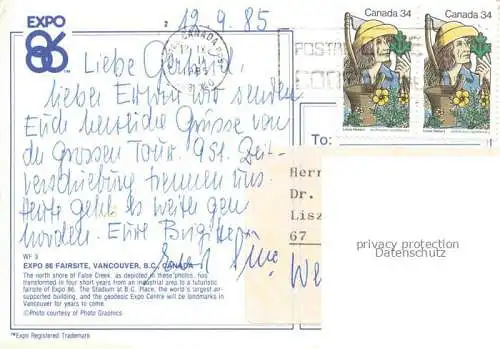 EXPO
86 TM
2
12.9.85
Canada 34
Canada 34
CANADA
POSTAL
CODE
Liebe Gerlind,
lieber Erwin wir senden
Euch herzliche Grüsse von
der Grossen Tour. 9 St. Zeit-
verschiebung trennen uns.
Heute geht es weiter gen
Norden. Eure Brigitte
To:
Herr
Dr.
Lisz
67
We
privacy protection
Datenschutz
WF 3
EXPO 86 FAIRSITE, VANCOUVER, B.C., CANADA
The north shore of False Creek, as depicted in these photos, has
transformed in four short years from an industrial area to a futuristic
fairsite of Expo 86. The Stadium at B.C. Place, the world's largest air-
supported building, and the geodesic Expo Centre will be landmarks in
Vancouver for years to come.
©Photo courtesy of Photo Graphics
™Expo Registered Trademark